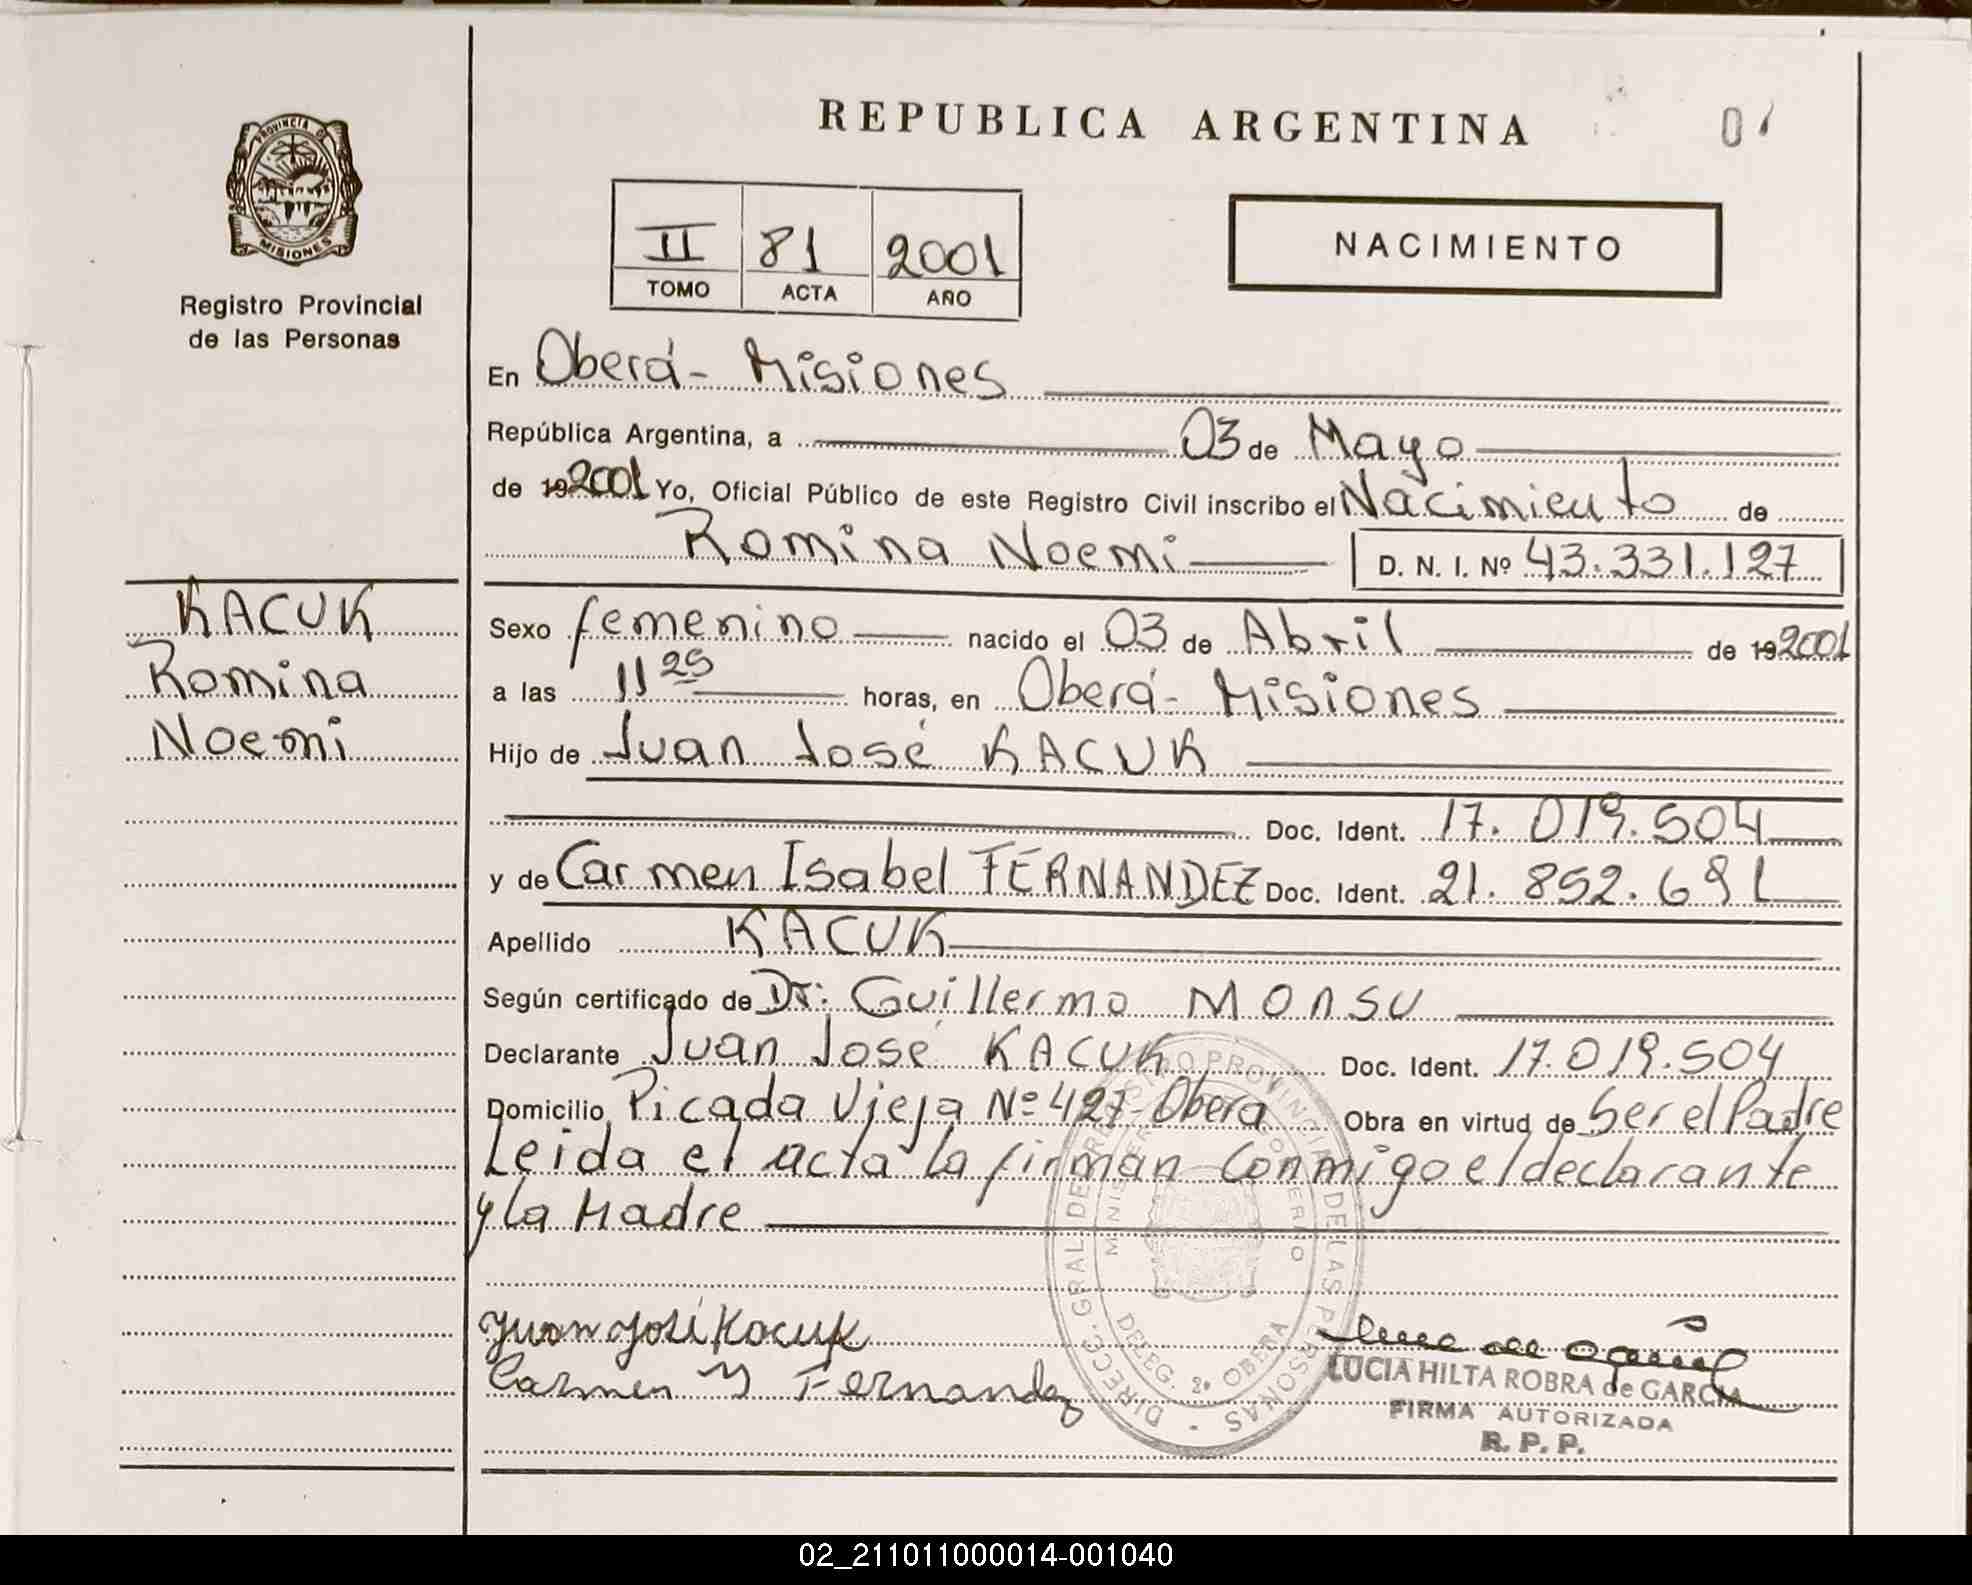 REPUBLICA ARGENTINA
PROVINCIA DE
MISIONES
Registro Provincial
de las Personas
II 81 2001
TOMO ACTA AÑO
NACIMIENTO
En Oberá - Misiones
República Argentina, a 03 de Mayo
de 19 2001 Yo, Oficial Público de este Registro Civil inscribo el Nacimiento de
Romina Noemi D. N. I. Nº 43.331.127
KACUK
Romina
Noemi
Sexo femenino nacido el 03 de Abril de 19 2001
a las 11 25 horas, en Oberá - Misiones
Hijo de Juan José KACUK
Doc. Ident. 17.019.504
y de Carmen Isabel FERNANDEZ Doc. Ident. 21.852.691
Apellido KACUK
Según certificado de Dr: Guillermo MONSU
Declarante Juan José KACUK Doc. Ident. 17.019.504
Domicilio Picada Vieja Nº 427 - Oberá Obra en virtud de Ser el Padre
Leida el acta la firman Conmigo el declarante
y la Madre
Juan José Kacuk
Carmen Y Fernandez
DIRECC. GRAL. DE REGISTRO PROVINCIAL DE LAS PERSONAS
MINISTERIO GOBIERNO
DELEG. 2º OBERA
LUCIA HILTA ROBRA de GARCIA
FIRMA AUTORIZADA
R. P. P.
02_211011000014-001040